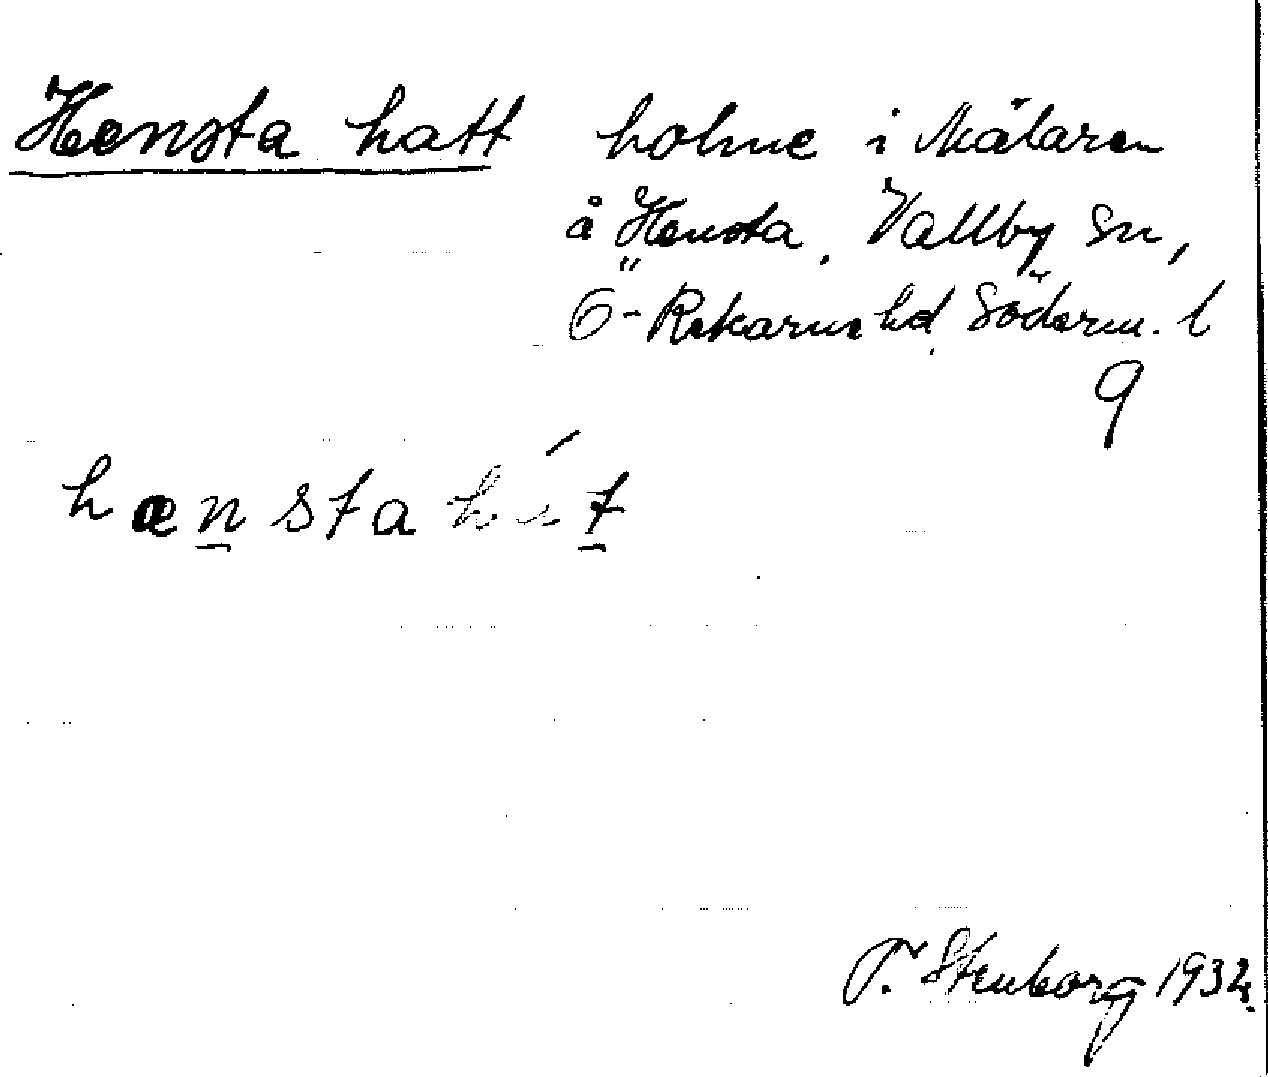 Hensta hatt holme i Mälaren
å Hensta, Vallby sn,
Ö-Rekarne hd Söderm. l
9
hænsta hat
T. Stenborg 1932.